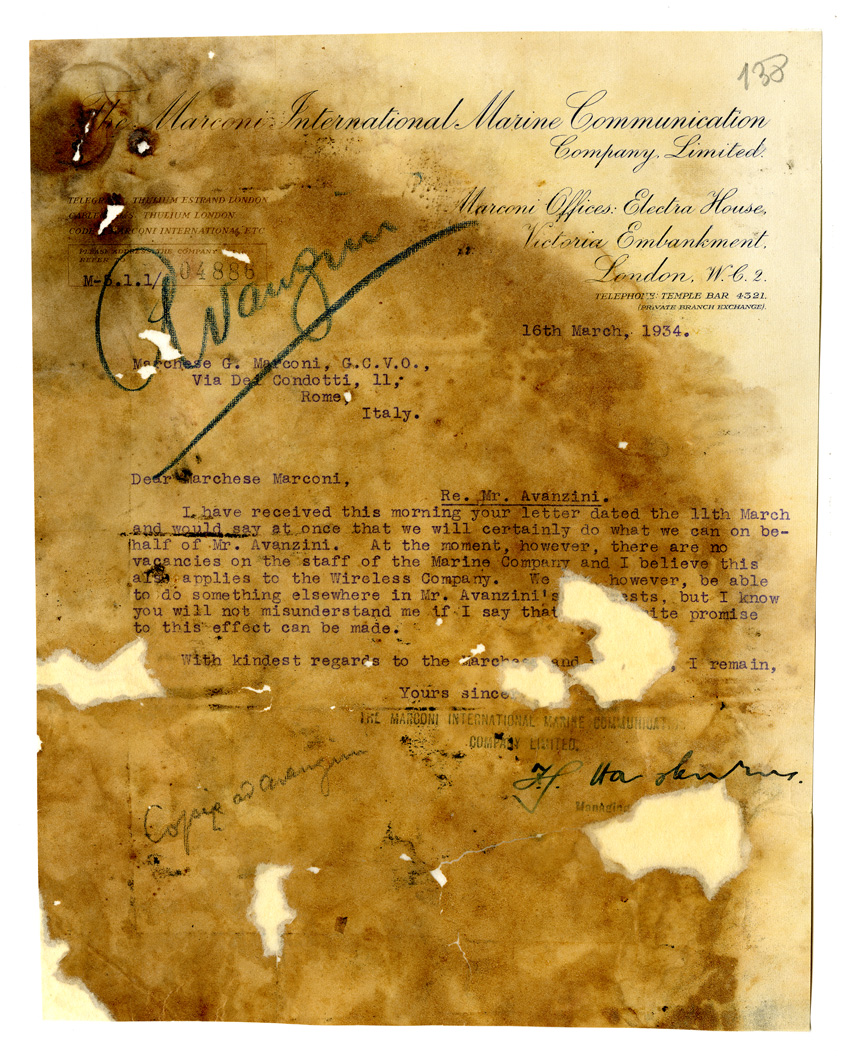 138
The Marconi International Marine Communication
Company, Limited.
TELEGRAMS THULIUM ESTRAND LONDON
THULIUM LONDON
MARCONI INTERNATIONAL ETC
Marconi Offices: Electra House,
Victoria Embankment,
London, W.C. 2.
TELEPHONE: TEMPLE BAR 4321.
(PRIVATE BRANCH EXCHANGE).
PLEASE ADDRESS THE COMPANY
REFER TO
04886
Avanzini
16th March, 1934.
Marchese G. Marconi, G.C.V.O.,
Via Dei Condotti, 11,
Rome,
Italy.
Dear Marchese Marconi,
Re. Mr. Avanzini.
I have received this morning your letter dated the 11th March
and would say at once that we will certainly do what we can on be-
half of Mr. Avanzini. At the moment, however, there are no
vacancies on the staff of the Marine Company and I believe this
also applies to the Wireless Company. We however, be able
to do something elsewhere in Mr. Avanzini's but I know
you will not misunderstand me if I say that promise
to this effect can be made.
With kindest regards to the and , I remain,
Yours
THE MARCONI INTERNATIONAL MARINE COMMUNICAT
COMPANY LIMITED.
Managing
Copia ad Avanzini